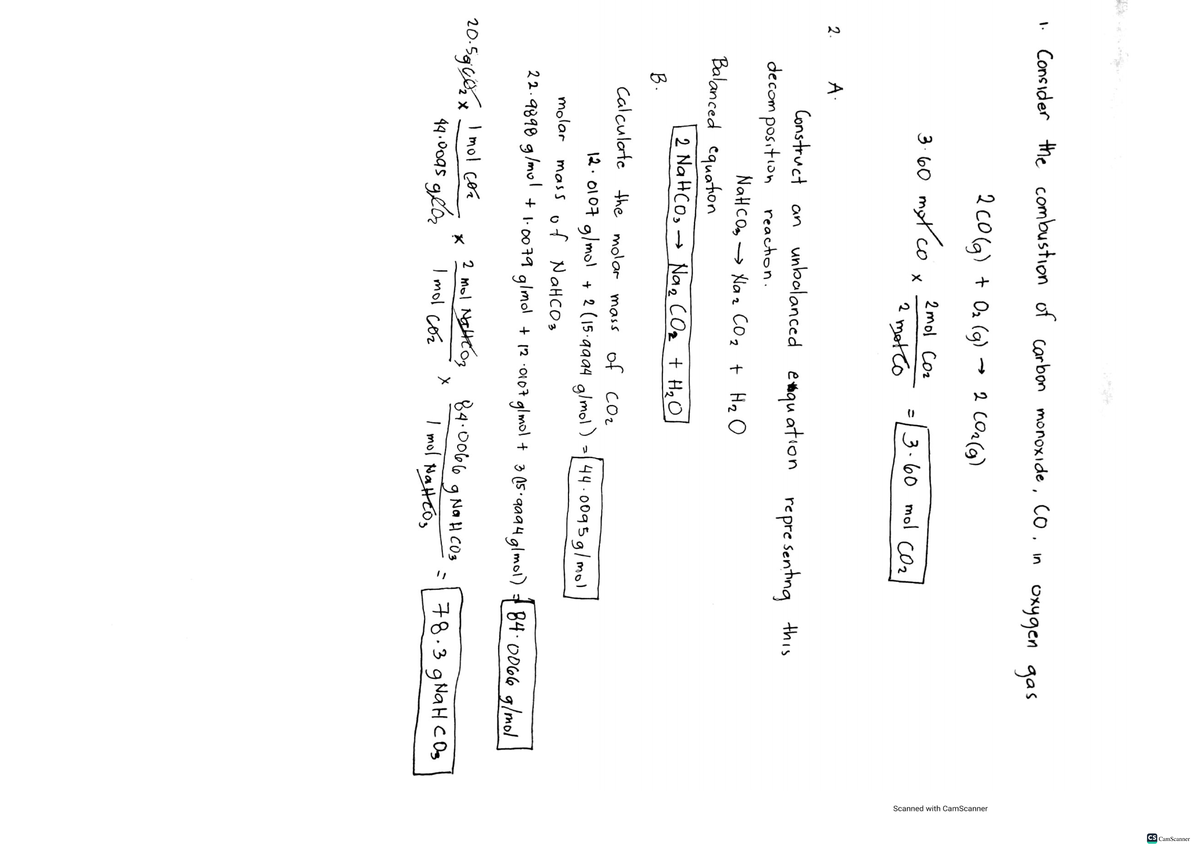 1. Consider the combustion of carbon monoxide, CO, in oxygen gas
2CO(g) + O₂(g) → 2 CO₂(g)
3.60 mol CO x 2mol CO₂ / 2 mol CO = 3.60 mol CO₂
2. A.
Construct an unbalanced equation representing this
decomposition reaction.
NaHCO₃ → Na₂ CO₂ + H₂O
Balanced equation
2 NaHCO₃ → Na₂ CO₂ + H₂O
B.
Calculate the molar mass of CO₂
12.0107 g/mol + 2(15.9994 g/mol) = 44.0095 g/mol
molar mass of NaHCO₃
22.9898 g/mol + 1.0079 g/mol + 12.0107 g/mol + 3(15.9994 g/mol) = 84.0066 g/mol
20.5g CO₂ x 1 mol CO₂ / 44.0095 g CO₂ x 2 mol NaHCO₃ / 1 mol CO₂ x 84.0066 g NaHCO₃ / 1 mol NaHCO₃ = 78.3 g NaHCO₃
Scanned with CamScanner
CS CamScanner